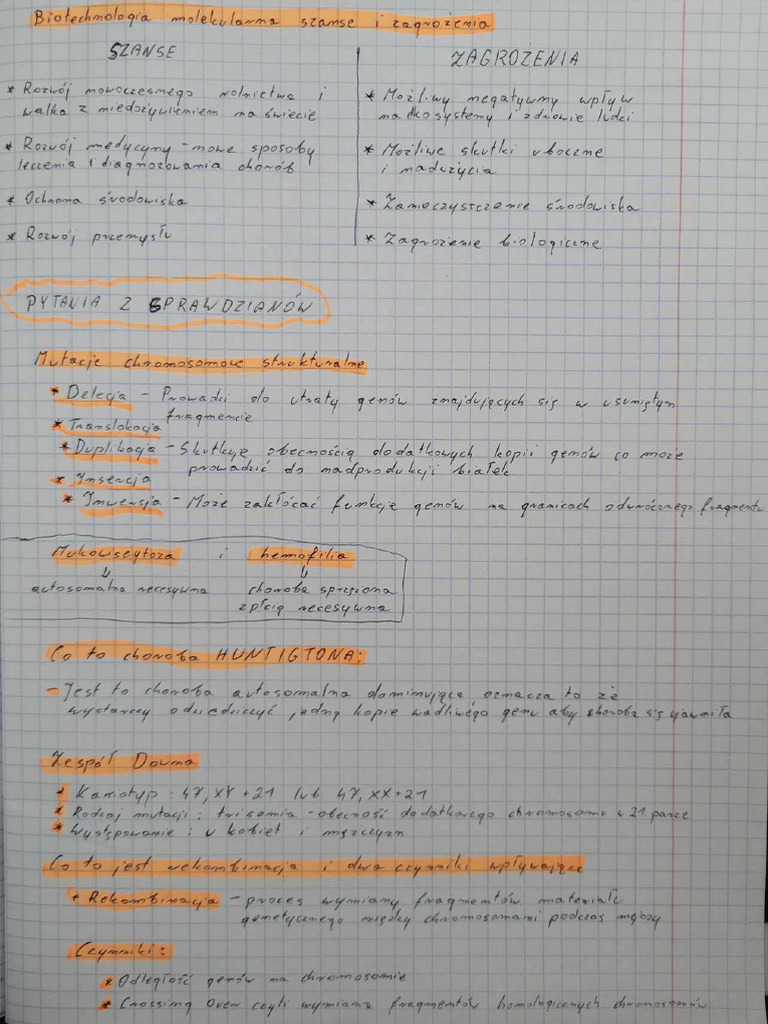 Biotechnologia molekularna szanse i zagrożenia
SZANSE
* Rozwój nowoczesnego rolnictwa i
walka z niedożywieniem na świecie
* Rozwój medycyny - nowe sposoby
leczenia i diagnozowania chorób
* Ochrona środowiska
* Rozwój przemysłu
ZAGROŻENIA
* Możliwy negatywny wpływ
na ekosystemy i zdrowie ludzi
* Możliwe skutki uboczne
i nadużycia
* Zanieczyszczenie środowiska
* Zagrożenie biologiczne
PYTANIA Z SPRAWDZIANÓW
Mutacje chromosomowe strukturalne
* Delecja - Prowadzi do utraty genów znajdujących się w usuniętym
fragmencie
* Translokacja
* Duplikacja - Skutkuje obecnością dodatkowych kopii genów co może
prowadzić do nadprodukcji białek
* Insercja
* Inwersja - Może zakłócać funkcje genów na granicach odwróconego fragmentu
Mukowiscytoza i hemofilia
↓ ↓
autosomalna recesywna choroba sprzężona
z płcią recesywna
Co to choroba HUNTIGTONA:
- Jest to choroba autosomalna dominująca oznacza to że
wystarczy odziedziczyć jedną kopie wadliwego genu aby choroba się ujawniła
Zespół Downa
* Kariotyp : 47, XY + 21 lub 47, XX + 21
* Rodzaj mutacji : trisomia - obecność dodatkowego chromosomu w 21. parze
* Występowanie : u kobiet i mężczyzn
Co to jest rekombinacja i dwa czynniki wpływające
* Rekombinacja - proces wymiany fragmentów materiału
genetycznego między chromosomami podczas mejozy
Czynniki:
* Odległość genów na chromosomie
* Crossing Over czyli wymiana fragmentów homologicznych chromosomów